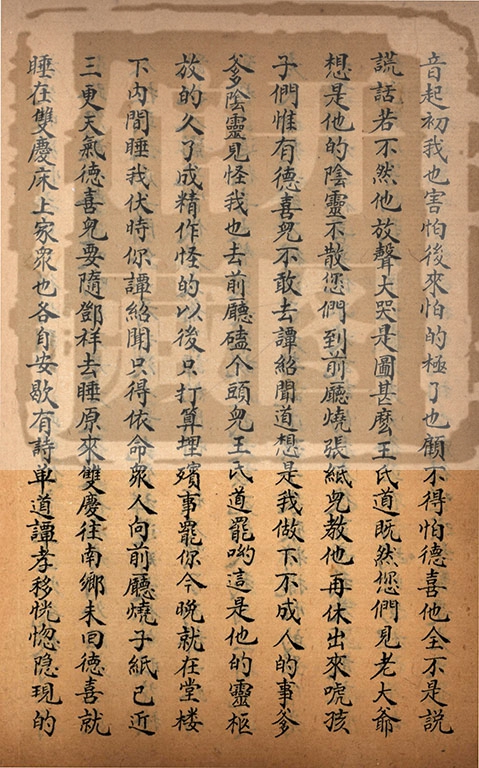 音起初我也害怕後來怕的極了也顧不得怕德喜他全不是說
謊話若不然他放聲大哭是圖甚麽王氏道既然您們見老大爺
想是他的陰靈不散您們到前廳燒張紙兒教他再休出來唬孩
子們惟有德喜兒不敢去譚紹聞道想是我做下不成人的事爹
爹陰靈見怪我也去前廳磕个頭兒王氏道罷喲這是他的靈柩
放的久了成精作怪的以後只打算埋殯事罷你今晚就在堂楼
下內間睡我伏時你譚紹聞只得依命衆人向前廳燒了紙已近
三更天氣德喜兒要隨鄧祥去睡原來雙慶往南鄉未回德喜就
睡在雙慶床上家衆也各自安歇有詩单道譚孝移恍惚隐現的